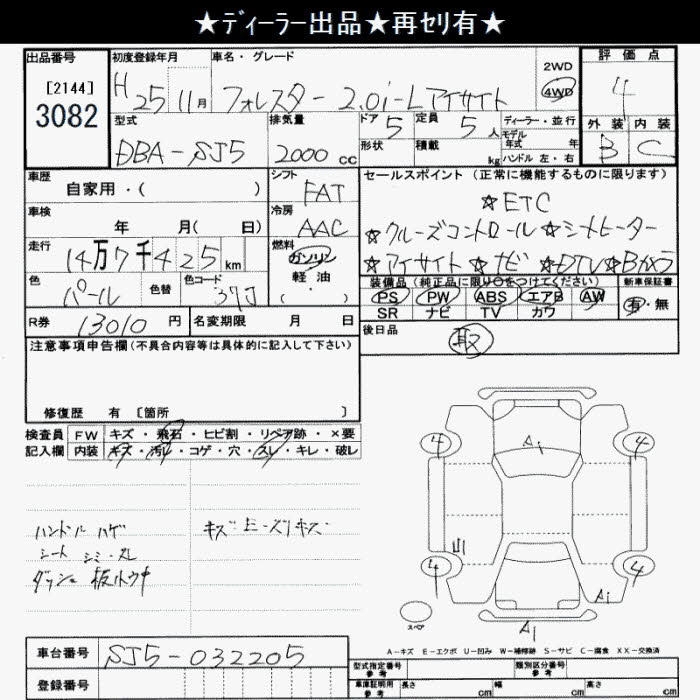 ★ディーラー出品★再セリ有★
出品番号 初度登録年月 車名・グレード 2WD 4WD 評価点
[2144] 3082 H 25 11月 フォレスター 2.0i-L アイサイト 4
型式 排気量 ドア 5 定員 5人 ディーラー・並行 外装 内装
モデル年式 年
DBA-SJ5 2000cc 形状 積載 kg ハンドル 左・右 B C
車歴 シフト セールスポイント (正常に機能するものに限ります)
自家用・( ) FAT ★ETC
車検 冷房 ★クルーズコントロール ★シートヒーター
年 月( 日) AAC
走行 燃料 ★アイサイト ★ナビ ★DTV ★Bカメラ
14万7千425km ガソリン
軽・油
( ・ )
色 色替 色コード 装備品 (純正品に限り○をつけてください) 新車保証書
パール 37J PS PW ABS エアB AW 有・無
SR ナビ TV カワ
R券 13010円 名変期限 月 日 後日品
注意事項申告欄(不具合内容等は具体的に記入して下さい) 取
修復歴 有 [箇所 ]
検査員 FW キズ・飛石・ヒビ割・リペア跡・×要
記入欄 内装 キズ・汚レ・コゲ・穴・スレ・キレ・破レ
A1
4 4
ハンドル ハゲ
シート シミ・スレ
4 4
A1
スペア
A-キズ E-エクボ U-凹み W-補修跡 S-サビ C-腐食 XX-交換済
車台番号 SJ5-032205
型式指定番号 参考 類別区分番号 参考
登録番号 車庫証明用 参考 長さ cm 幅 cm 高さ cm